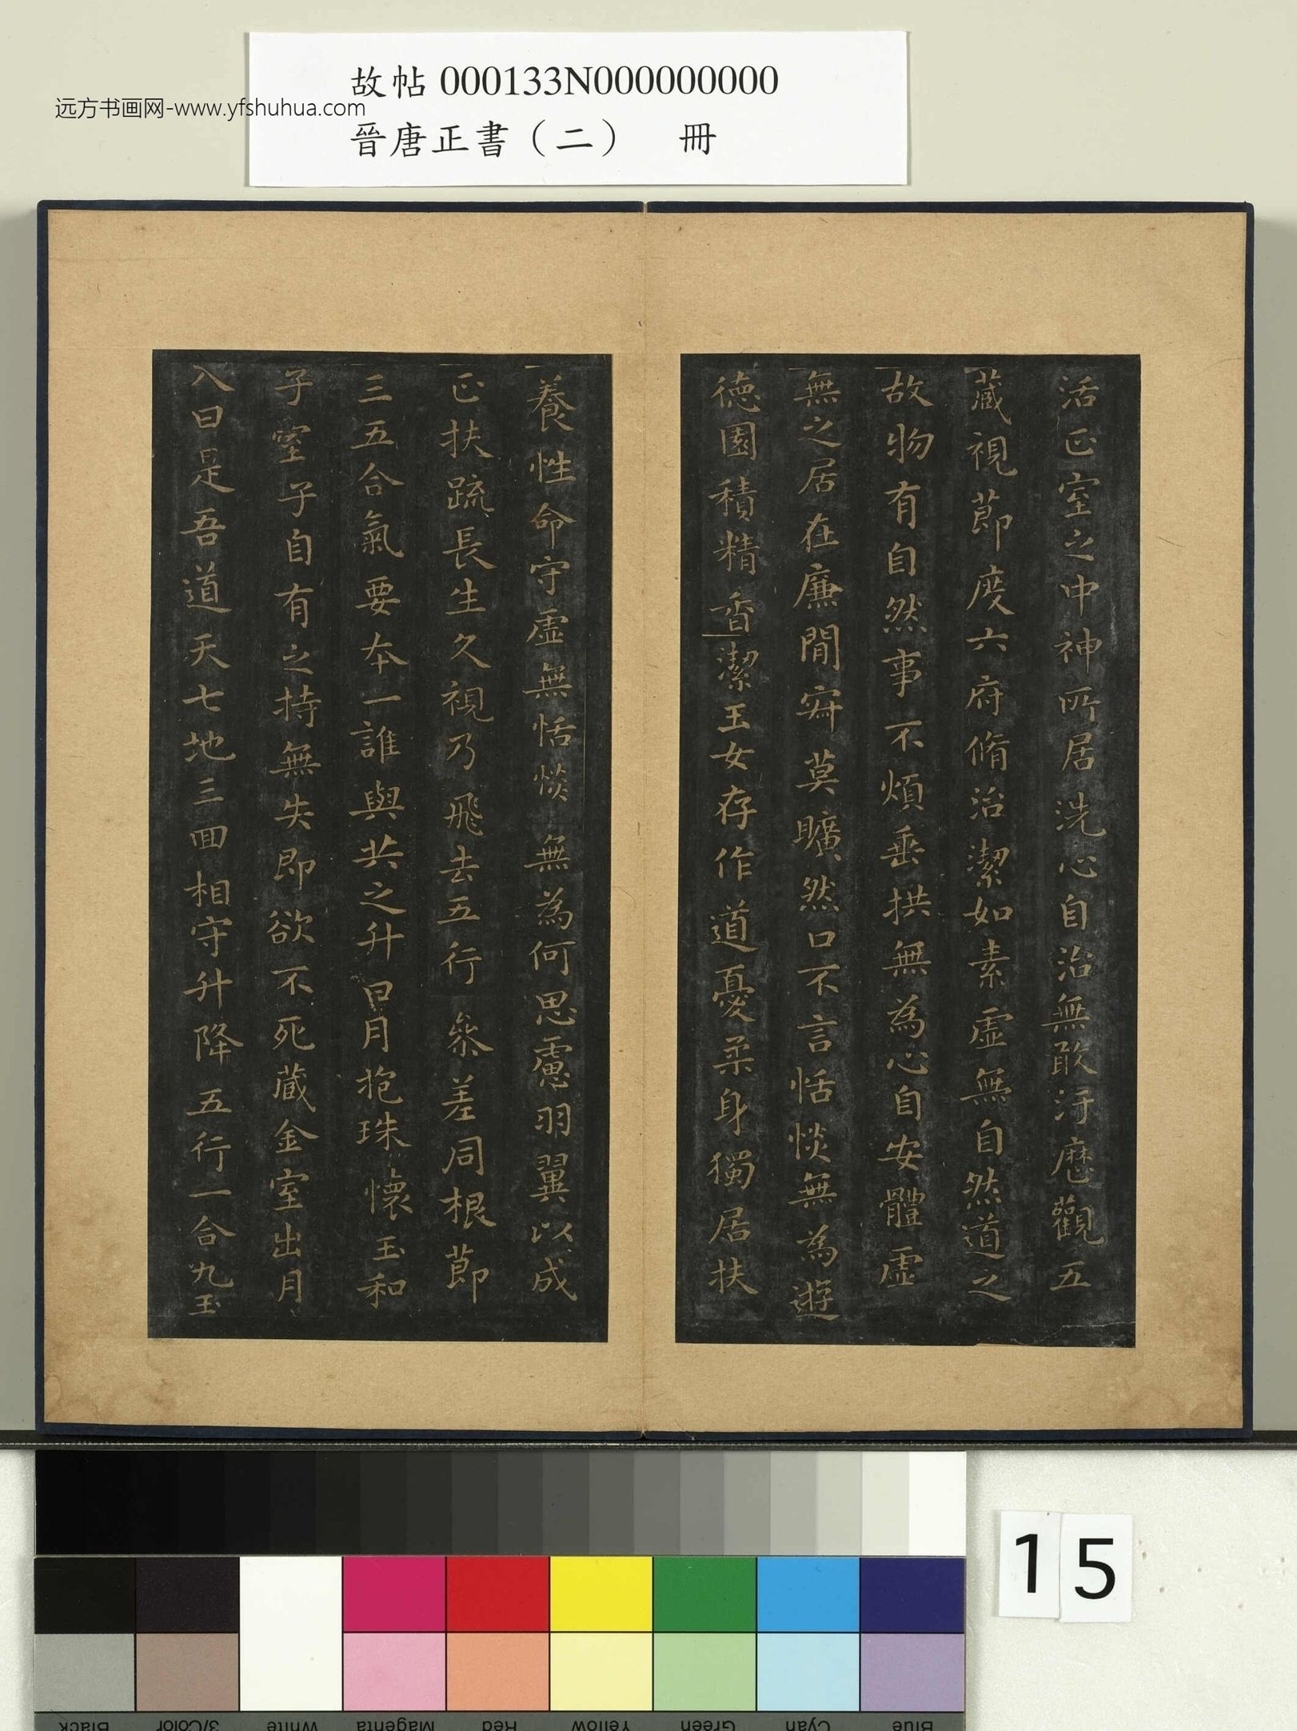 故帖 000133N000000000
远方书画网-www.yfshuhua.com
晉唐正書（二） 冊
活正室之中神所居洗心自治無敢汙歷觀五
藏視莭度六府脩治潔如素虛無自然道之
故物有自然事不煩垂拱無為心自安體虛
無之居在廉閒寂莫曠然口不言恬惔無為遊
德園積精香潔玉女存作道憂柔身獨居扶
養性命守虛無恬惔無為何思慮羽翼以成
正扶疏長生久視乃飛去五行參差同根莭
三五合氣要本一誰與共之升日月抱珠懷玉和
子室子自有之持無失即欲不死藏金室出月
入日是吾道天七地三回相守升降五行一合九玉
15
Black
3/Color
White
Magenta
Red
Yellow
Green
Cyan
Blue